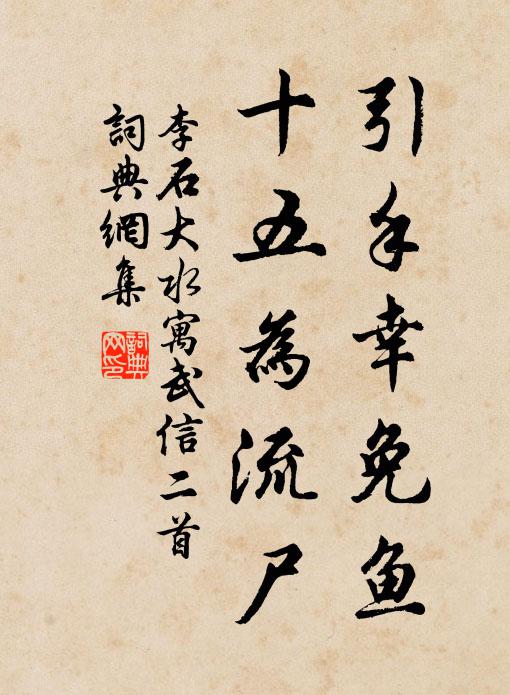 引手幸免鱼
十五為流尸
李石大水寓武信二首
詞典網集
詞典网印